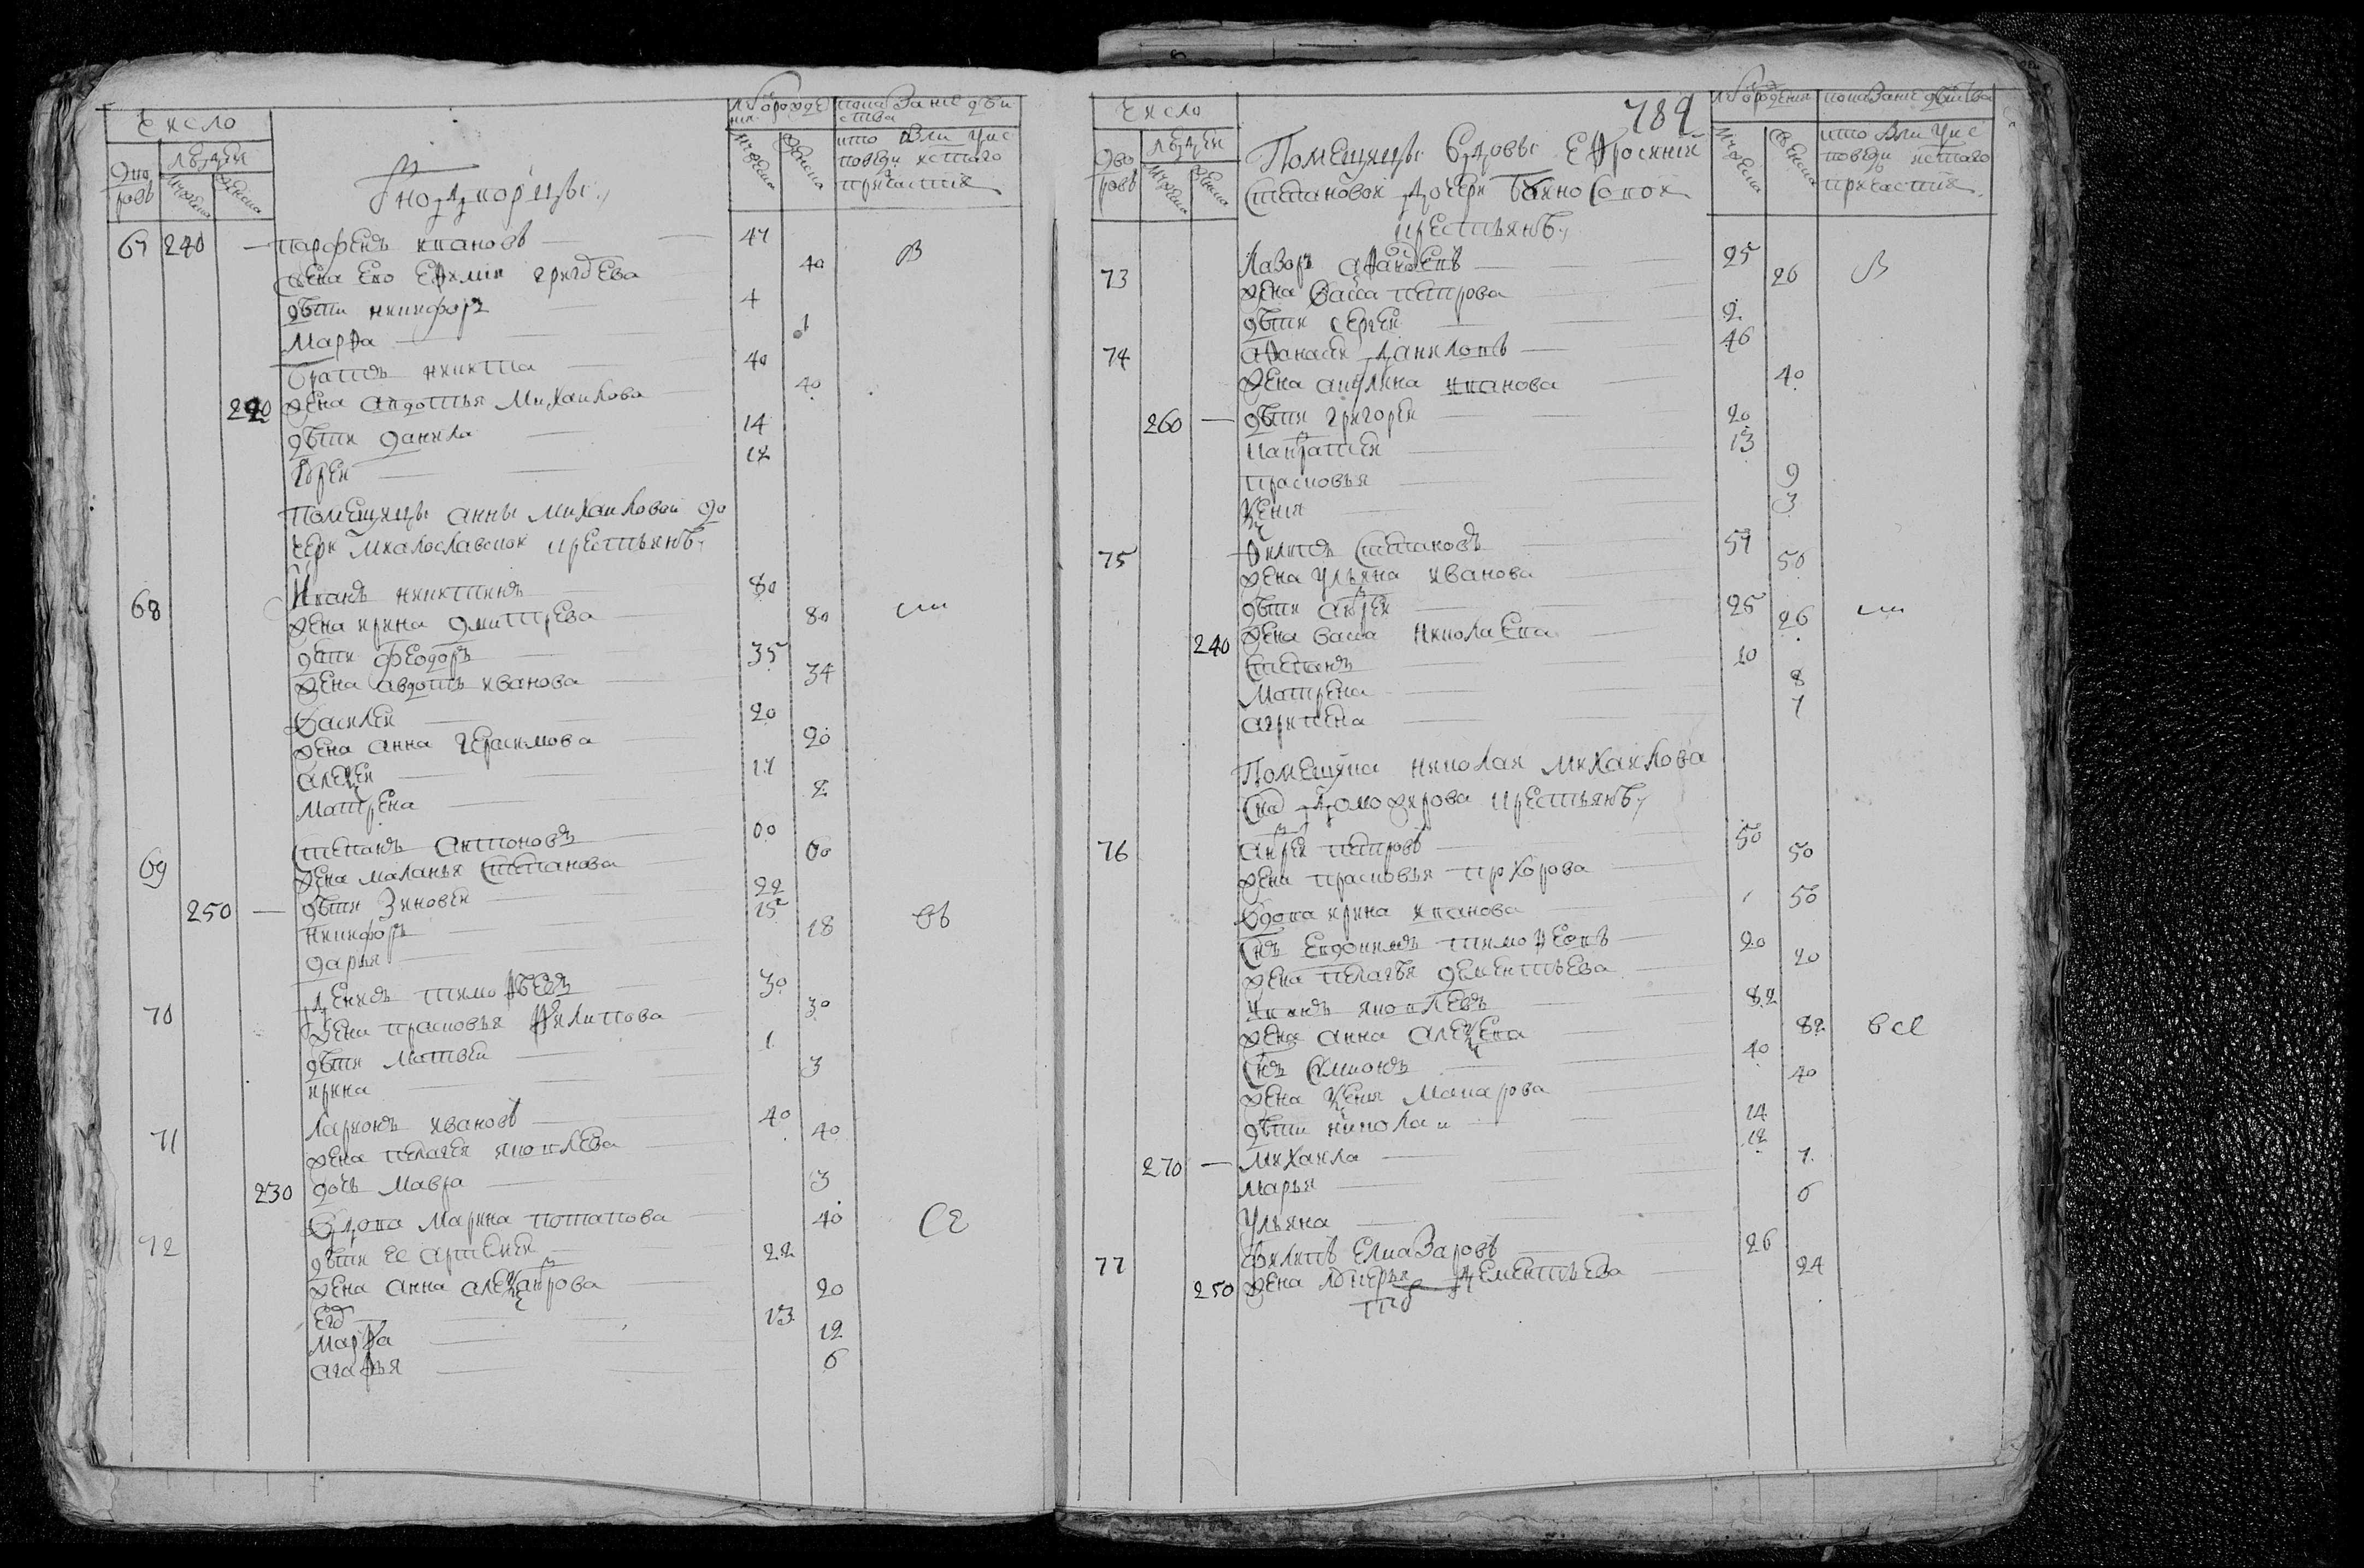 Число
Лѣта от рожде
ния
показание дѣй
ства
Дво
ровъ
людей
мужеска
женска
мужеска
женска
кто были у ис
поведи и стаго
причастия
Однодворцы
67 240 — Парфенъ Ивановъ 47
жена ево Ефимия Григорева 40 В
дѣти Никифоръ 4
Марфа 1
братъ Никита 40
220 жена Авдотья Михаилова 40
дѣти Данила 14
Юреи 12
Помещицы Анны Михаиловои до
чери Милославскои крестьянѣ
68 Иванъ Никитинъ 80
жена Ирина Дмитрева 80
дѣти Феодоръ 35
жена Авдотья Иванова 34
Василеи 20
жена Анна Герасимова 20
Алеѯеи 17
Матрена 2
69 Степанъ Антоновъ 60
жена Маланья Степанова 60
250 — дѣти Зиновеи 22
Никифоръ 15
Дарья 18
70 Денисъ Тимофѣевъ 30
жена Прасковья Филипова 30
дѣти Матвеи 1
Ирина 3
71 Ларионъ Ивановъ 40
жена Пелагея Яковлева 40
230 дочь Мавра 3
72 Вдова Марина Потапова 40 се
дѣти ее Артемеи 22
жена Анна Алеѯандрова 20
Егор 13
Марфа 12
Агафья 6
789
Число
Лѣта от рождения
показание дѣйства
Дво
ровъ
людей
мужеска
женска
мужеска
женска
кто были у ис
поведи и стаго
причастия
Помещицы вдовы Ефросинии
Степановои дочери
крестьянѣ
73 Лазорь Афанасевъ 25
жена Васса Петрова 26 В
дѣти Сергеи 2
74 Афанасеи Даниловъ 46
жена Акулина Иванова 40
260 — дѣти Григореи 20
Панкратеи 13
Прасковья 9
Ѯения 3
75 Филипъ Степановъ 57
жена Ульяна Иванова 50
дѣти Андреи 25
240 жена Васса Николаева 26
Степанъ 10
Матрена 8
Агрипена 7
Помещика Николая Михаилова
сна Доможирова крестьянѣ
76 Андреи Петровъ 50
жена Прасковья Прохорова 50
Вдова Ирина Иванова 50
снъ Евдокимъ Тимофеевъ 20
жена Пелагѣя Дементьева 20
Иванъ Яковлевъ 82
жена Анна Алеѯева 82 все
снъ Симионъ 40
жена Ѯения Макарова 40
дѣти Николаи 14
270 — Михаила 12
Марья 7
Ульяна 6
77 Филипъ Елиазаровъ 26
250 жена Лукерья Дементьева 24